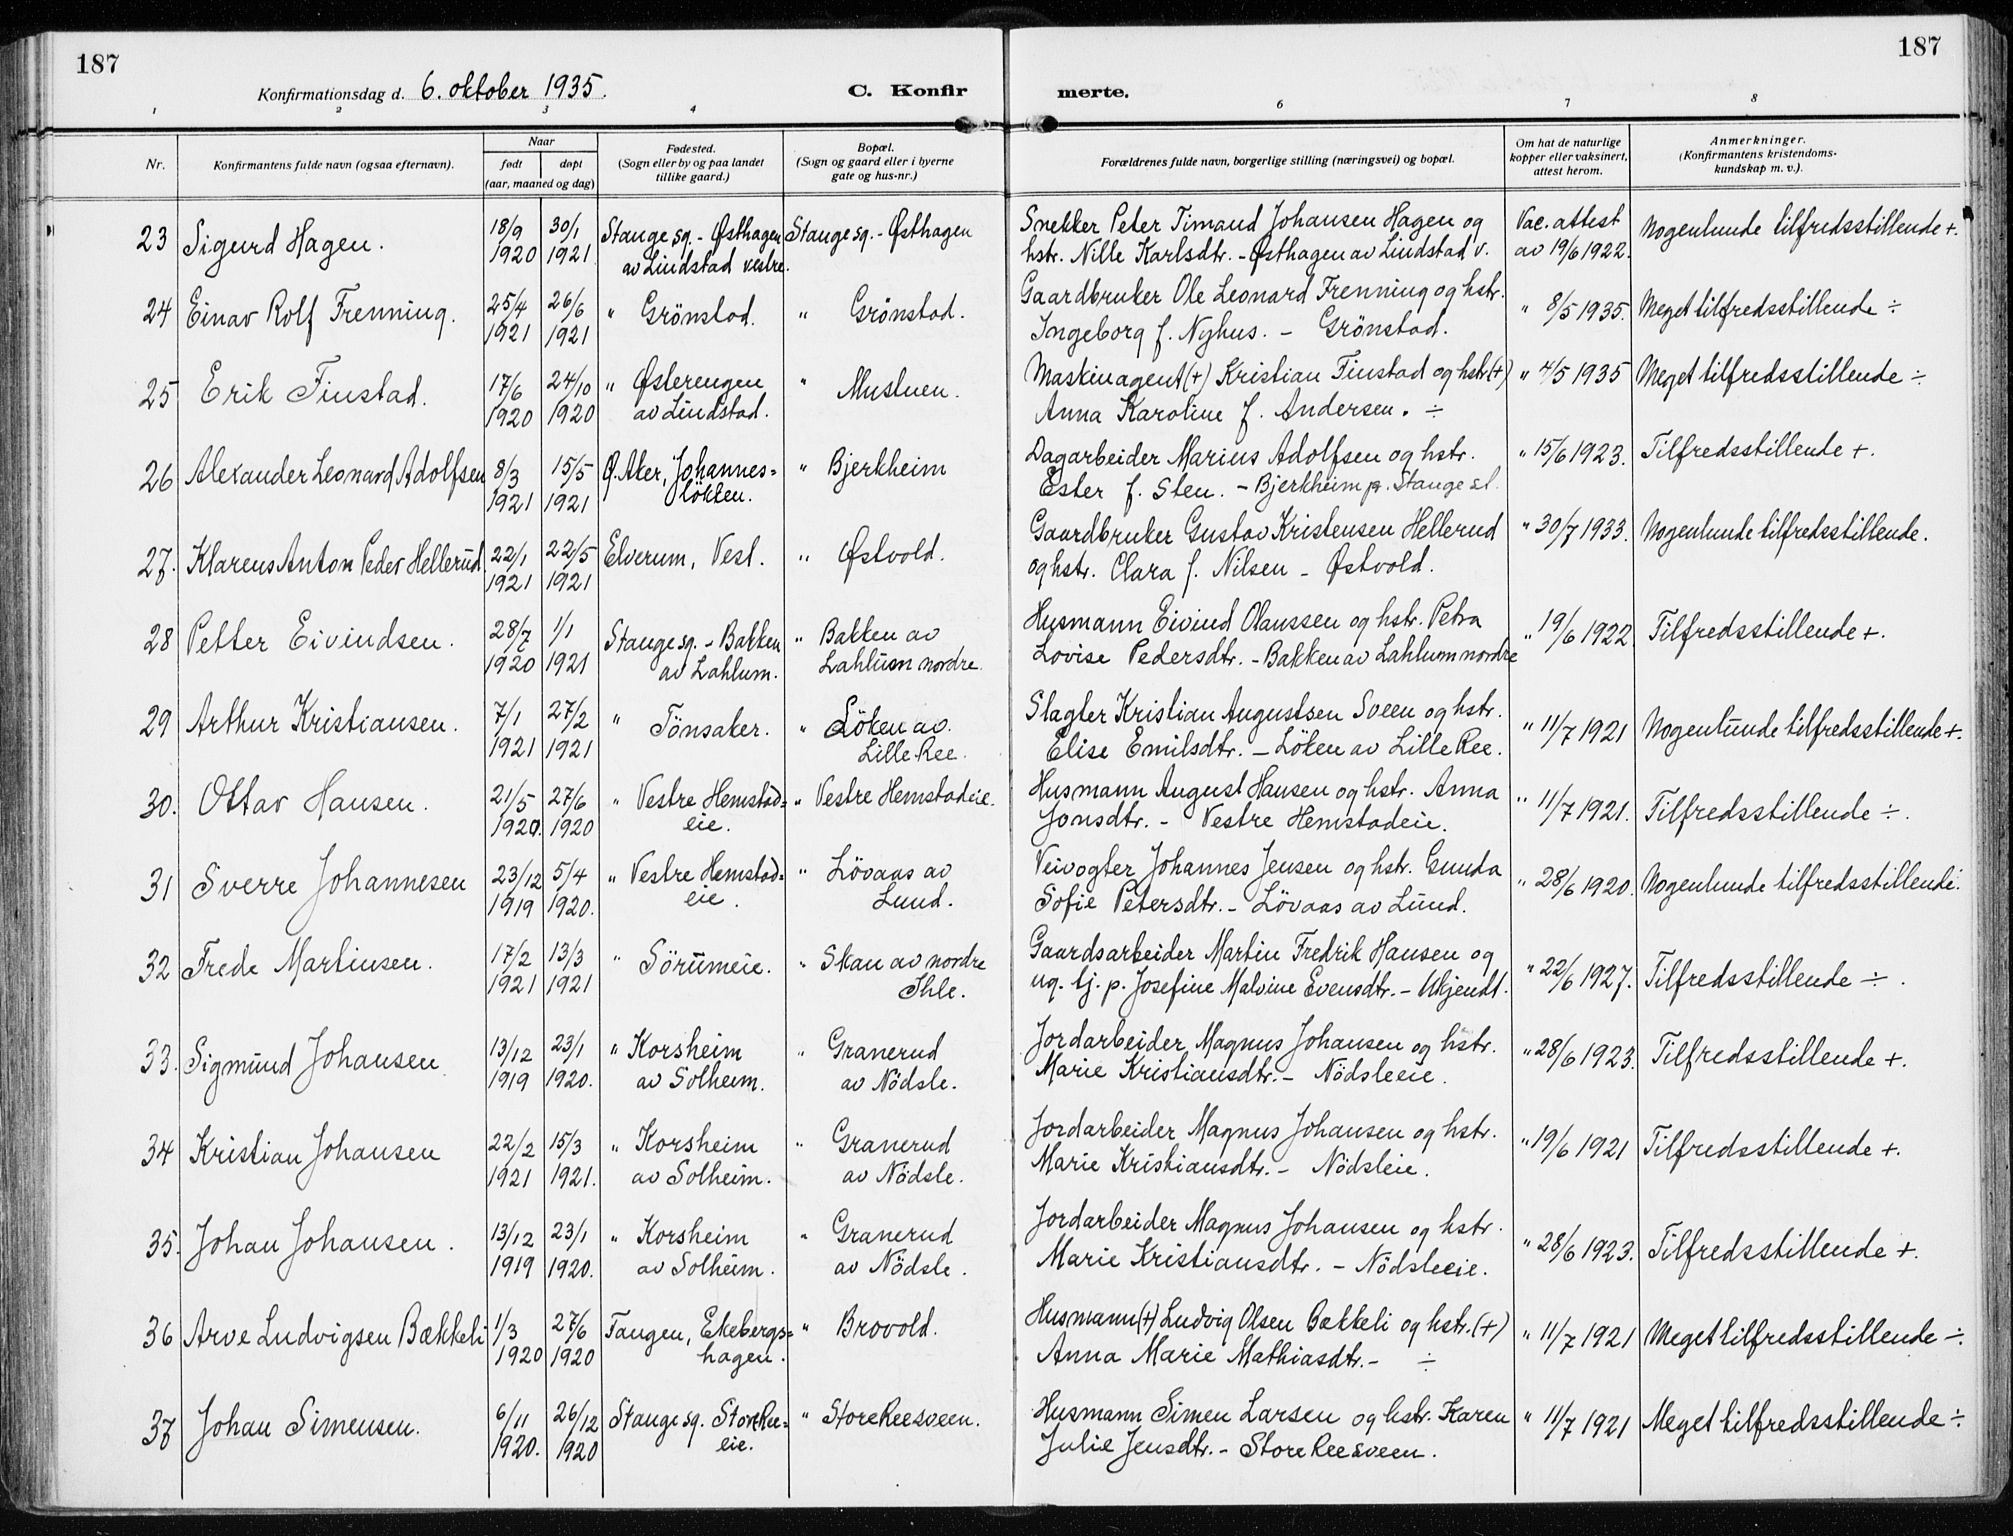 187
187
Konfirmationsdag d. 6. oktober 1935.
C. Konfir
merte.
1 2 3 4 6 7 8
Nr.
Konfirmantens fulde navn (ogsaa efternavn).
Naar
født døpt
(aar, maaned og dag)
Fødested.
(Sogn eller by og paa landet
tillike gaard.)
Bopæl.
(Sogn og gaard eller i byerne
gate og hus-nr.)
Forældrenes fulde navn, borgerlige stilling (næringsvei) og bopæl.
Om hat de naturlige
kopper eller vaksinert,
attest herom.
Anmerkninger.
(Konfirmantens kristendoms-
kundskap m. v.).
23 Sigurd Hagen. 18/9 30/1 Stange sg. - Østhagen Stange sg. - Østhagen Snekker Peter Timand Johansen Hagen og Vac. attest Nogenlunde tilfredsstillende +.
1920 1921 av Lindstad vestre. hstr. Nille Karlsdtr. - Østhagen av Lindstad v. av 19/6 1922.
24 Einar Rolf Frenning. 25/4 26/6 " Grönstad. " Grönstad. Gaardbruker Ole Leonard Frenning og hstr. " 8/5 1935. Meget tilfredsstillende ÷
1921 1921 Ingeborg f. Nyhus. - Grönstad.
25 Erik Finstad. 17/6 24/10 " Østerengen " Mustuen. Maskinagent (+) Kristian Finstad og hstr (+) " 4/5 1935 Meget tilfredsstillende ÷
1920 1920 av Lindstad. Anna Karoline f. Andersen. ÷
26 Alexander Leonard Adolfsen 8/3 15/5 Ø. Aker, Johannes= " Bjerkheim Dagarbeider Marius Adolfsen og hstr. " 15/6 1923. Tilfredsstillende +.
1921 1921 lökken. Ester f. Sten. - Bjerkheim pr. Stange st.
27. Klarens Anton Peder Hellerud. 22/1 22/5 Elverum, Vestl. " Østvold. Gaardbruker Gustav Kristensen Hellerud " 30/7 1933. Nogenlunde tilfredsstillende.
1921 1921 og hstr. Clara f. Nilsen - Østvold.
28 Petter Eivindsen. 28/7 1/1 Stange sg. - Bakken " Bakken av Husmann Eivind Olaussen og hstr. Petra " 19/6 1922 Tilfredsstillende +.
1920 1921 av Lahlum. Lahlum nordre. Lovise Pedersdtr. - Bakken av Lahlum nordre
29 Arthur Kristiansen. 7/1 27/2 " Tönsaker. " Löken av Slagter Kristian Augustsen Sveen og hstr. " 11/7 1921 Nogenlunde tilfredsstillende +.
1921 1921 Lille Ree. Elise Emilsdtr. - Löken av Lille Ree.
30. Ottar Hansen. 21/5 27/6 " Vestre Hemstad= " Vestre Hemstadeie. Husmann August Hansen og hstr. Anna " 11/7 1921. Tilfredsstillende ÷.
1920. 1920 eie. Jonsdtr. - Vestre Hemstadeie.
31 Sverre Johannesen 23/12 5/4 " Vestre Hemstad= " Lövaas av Veivogter Johannes Jensen og hstr. Gunda " 28/6 1920. Nogenlunde tilfredsstillende.
1919 1920. eie. Lund. Sofie Petersdtr. - Lövaas av Lund.
32 Frede Martinsen. 17/2 13/3 " Sörumeie. " Skan av nordre Gaardsarbeider Martin Fredrik Hansen og " 22/6 1927. Tilfredsstillende ÷.
1921 1921 Ihle. ug. tj. p. Josefine Malvine Evensdtr. - Ukjendt.
33. Sigmund Johansen 13/12 23/1 " Korsheim " Granerud Jordarbeider Magnus Johansen og hstr. " 28/6 1923. Tilfredsstillende +.
1919 1920. av Solheim. av Nödsle. Marie Kristiansdtr. - Nödsleeie.
34 Kristian Johansen 22/2 15/3 " Korsheim " Granerud Jordarbeider Magnus Johansen og hstr. " 19/6 1921 Tilfredsstillende +.
1921 1921. av Solheim. av Nödsle. Marie Kristiansdtr. - Nödsleie.
35. Johan Johansen. 13/12 23/1 " Korsheim " Granerud Jordarbeider Magnus Johansen og hstr. " 28/6 1923. Tilfredsstillende +.
1919 1920. av Solheim. av Nödsle. Marie Kristiansdtr. - Nödsleeie.
36 Arve Ludvigsen Bækkeli 1/3 27/6 Tangen, Ekebergs= " Brovold. Husmann (+) Ludvig Olsen Bækkeli og hstr. (+) " 11/7 1921 Meget tilfredsstillende ÷.
1920 1920 hagen. Anna Marie Mathiasdtr. - ÷
37 Johan Simensen. 6/11 26/12 Stange sg. Store Ree= " Store Reesveen. Husmann Simen Larsen og hstr. Karen " 11/7 1921 Meget tilfredsstillende ÷
1920. 1920 eie. Julie Jensdtr. - Store Reesveen.